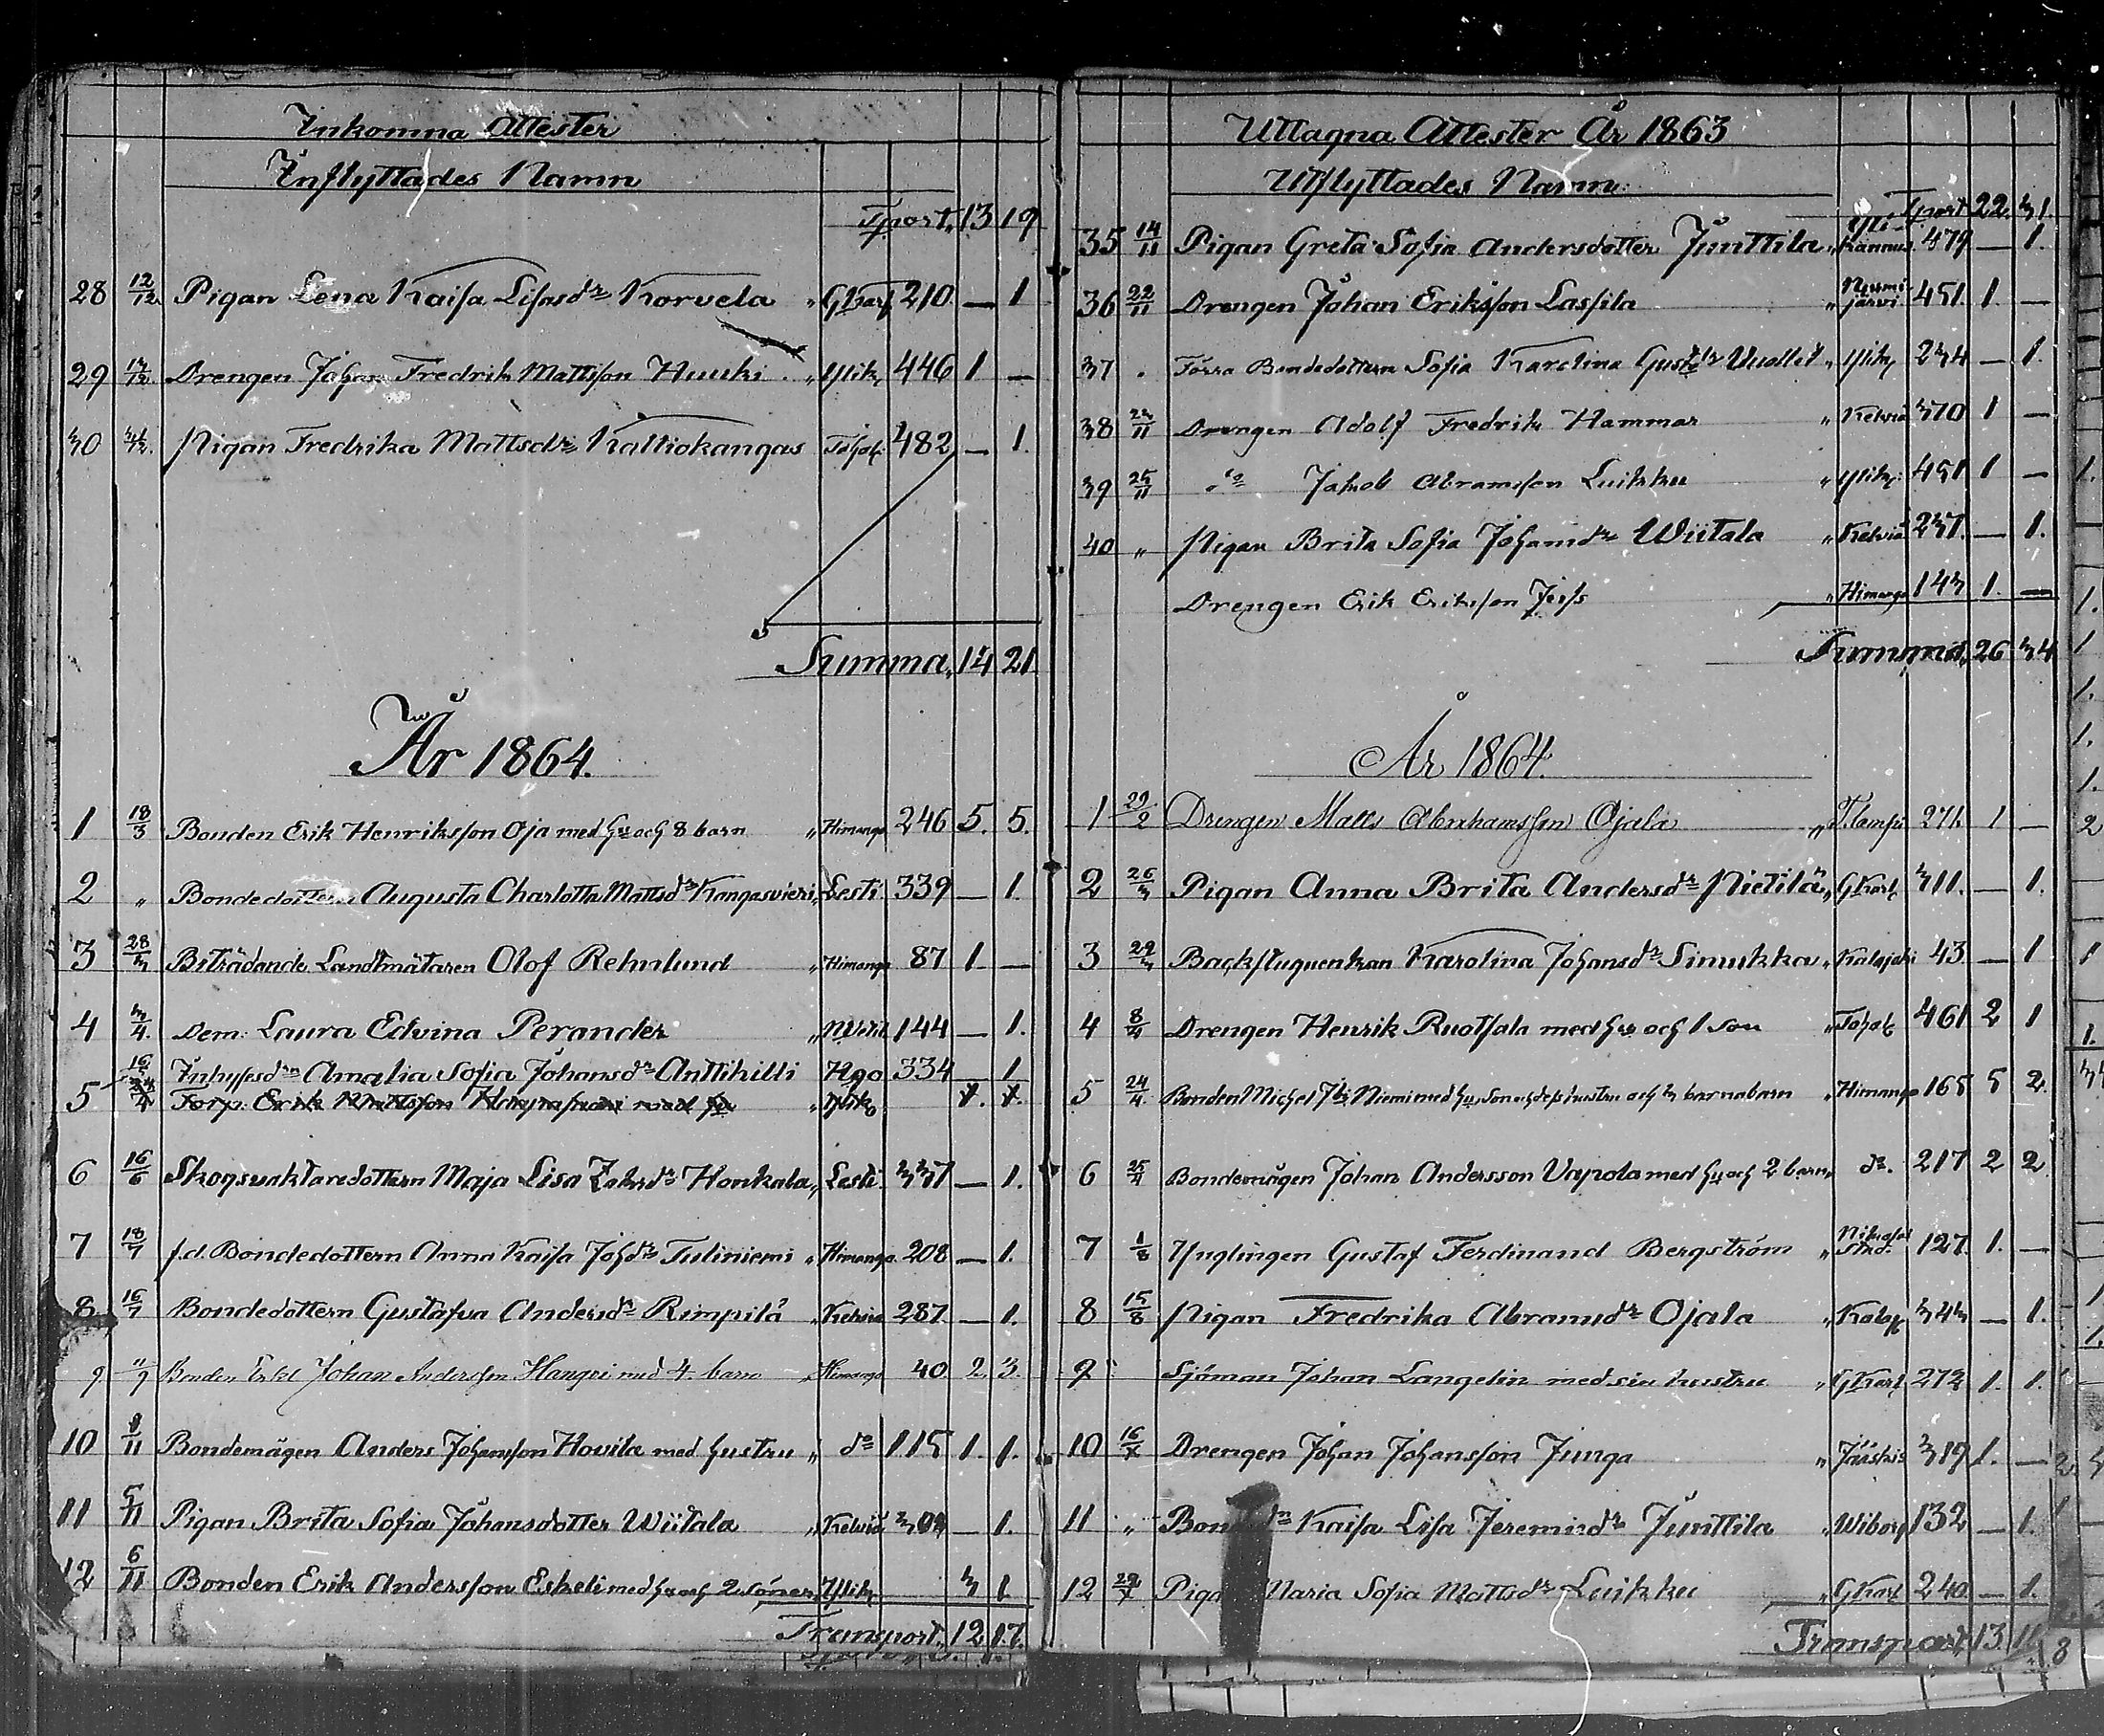 Inkomna Attester
Inflyttades Namn
Tsport. 13 19
28 12/12 Pigan Lena Kaisa Lisasdr Korvela " GKarl 210 — 1
29 14/12 Drengen Johan Fredrik Mattsson Huuki " Ylik 446 1 —
30 Pigan Fredrika Mattsdr Kaltiokangas Toholi 482 — 1.
Summa, 14 21
År 1864.
1 18/3 Bonden Erik Henriksson Oja med hu och 8 barn " Himango 246 5. 5.
2 " Bondedottern Augusta Charlotta Mattsdr Kangasvieri " Lesti 339 — 1.
3 28/3 Biträdande Landtmätaren Olof Rehnlund " Himango 87 1 —
4 3/4 Dem: Laura Edvina Perander " NWetil 144 — 1.
5 Inhysesdn Amalia Sofia Johansdr Anttihilli Hgo 334 1
Torp. Erik Mattsson " Ylik
6 16/6 Skogsvaktaredottern Maja Lisa Honkala " Lesti 337 — 1.
7 18/7 f.d. Bondedottern Anna Kaisa Johdr Tuliniemi " Himango 208 — 1.
8 16/7 Bondedottern Gustafva Andersdr Rimpilä " Kelviå 287 — 1.
9 11/9 Bonden Enkl Johan Andersson Hangvi med 4 barn " Himango 40 2 3.
10 9/11 Bondemågen Anders Johansson Hovila med hustru " do 115 1. 1.
11 5/11 Pigan Brita Sofia Johansdotter Wiitala " Kelviå 309 — 1.
12 6/11 Bonden Erik Andersson Eskeli med hu och 2 söner " Ylik 3 1
Transport. 12 17.
Uttagna Attester År 1863
Utflyttades Namn
Tsport 22. 31.
35 14/11 Pigan Greta Sofia Andersdotter Junttila " Yli-Kannus 479 — 1.
36 22/11 Drengen Johan Eriksson Lassila " Nurmijärvi 451. 1. —
37 " Förra Bondedottern Sofia Karolina Gustdr Vuollet " Ylik 234 — 1.
38 23/11 Drengen Adolf Fredrik Hammar " Kelviå 370 1 —
39 25/11 " do Jakob Abramsson Luikku " Ylik 451 1 —
40 " Pigan Brita Sofia Johansdr Wiitala " Kelviå 237. — 1.
Drengen Erik Eriksson Jeifs " Himango 143 1. —
Summa, 26 34
År 1864.
1 29/2 Drengen Matts Abrahamsson Ojala " T.lampi 271. 1 —
2 26/3 Pigan Anna Brita Andersdr Nietilä " GKarl 311. — 1.
3 29/3 Backstuguenkan Karolina Johansdr Simukka " Kalajoki 43 — 1
4 8/4 Drengen Henrik Ruotsala med hu och 1 son " Toholi 461 2 1
5 24/4 Bonden Michel Niemi med hu, son och dess hustru och 3 barnabarn " Himango 165 5 2.
6 25/4 Bondemågen Johan Andersson Vapola med hu och 2 barn " do. 217 2 2
7 1/8 Ynglingen Gustaf Ferdinand Bergström " Nikolaistad. 127 1. —
8 15/8 Pigan Fredrika Abramsdr Ojala " Kalaj. 343 — 1.
9 Sjöman Johan Langelin med sin hustru " GKarl 272 1. 1.
10 16/X Drengen Johan Johansson Junga " Jääskis 389 1. —
11 " Bondn Kaisa Lisa Jeremiedr Junttila " Wiborg 132 — 1.
12 29/X Pigan Maria Sofia Mattsdr Luikku " GKarl 240. — 1.
Transport 13 11